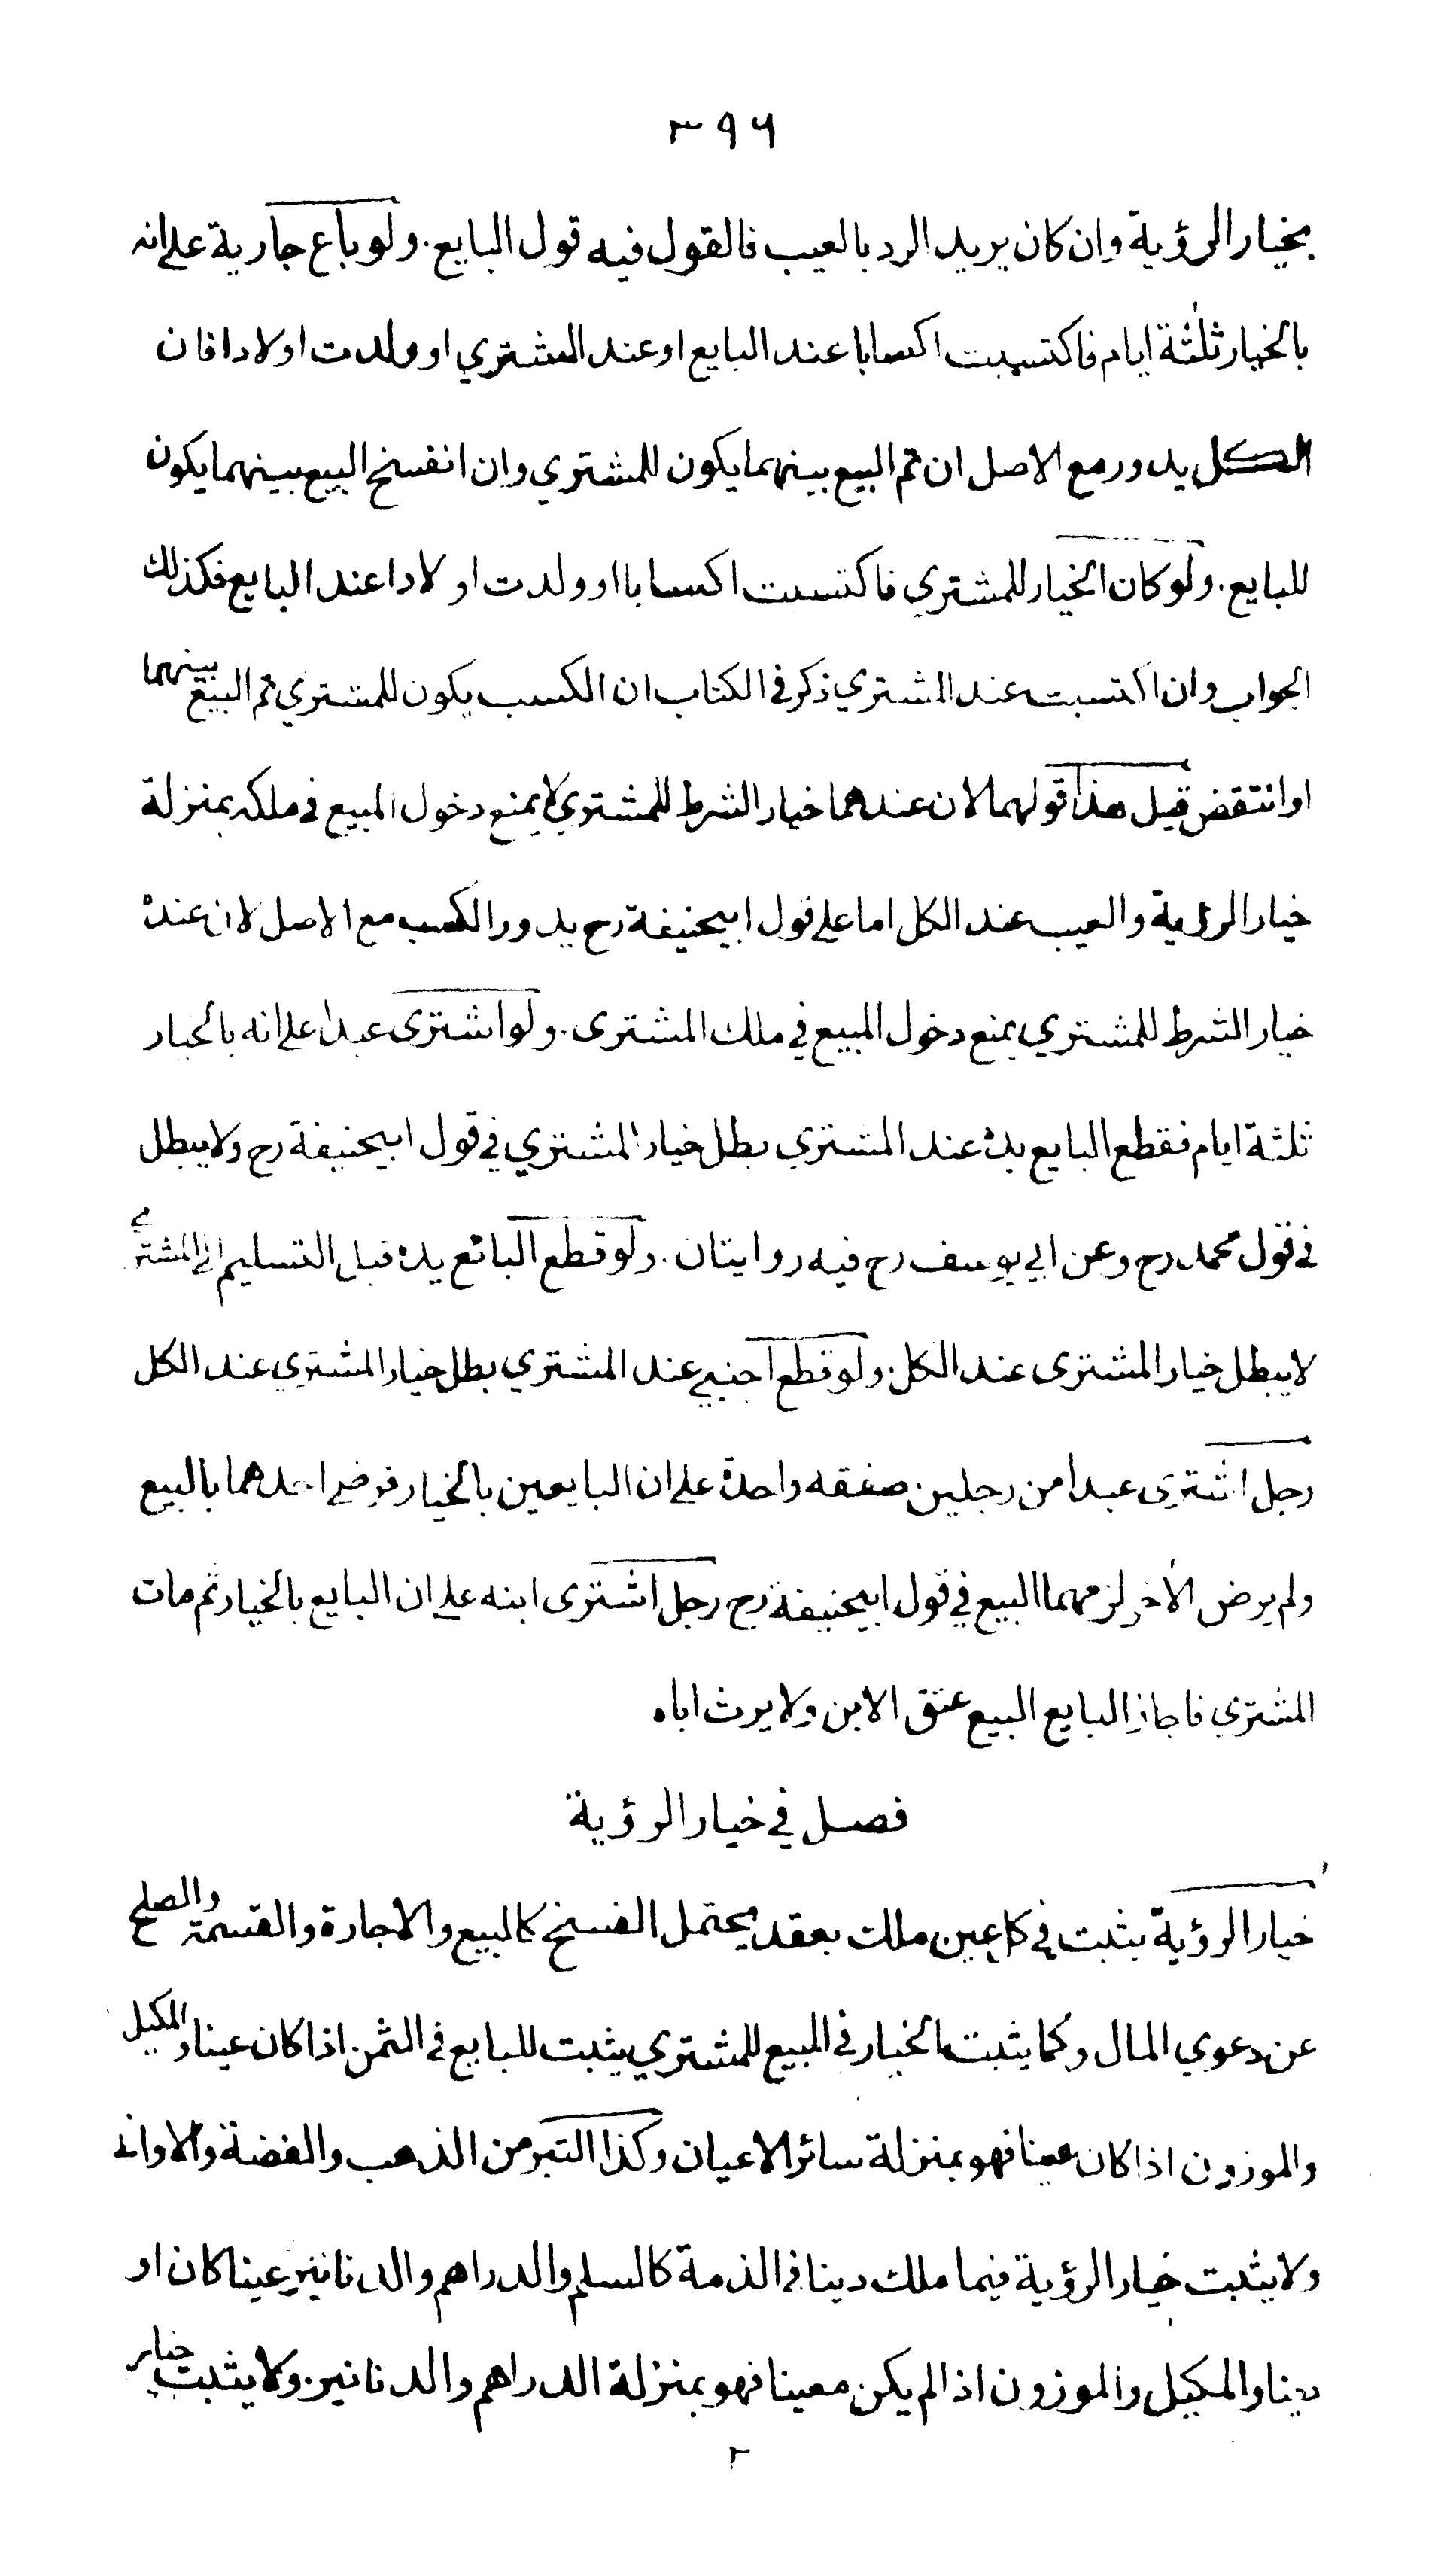 ٣٩٦
بخيار الرؤية وان كان يريد الرد بالعيب فالقول فيه قول البايع . ولو باع جارية على انه
بالخيار ثلثة ايام فاكتسبت اكسابا عند البايع او عند المشتري او ولدت اولادا فان
الكل يدور مع الاصل ان تم البيع بينهما يكون للمشتري وان انفسخ البيع بينهما يكون
للبايع . ولو كان الخيار للمشتري فاكتسبت اكسابا او ولدت اولادا عند البايع فكذلك
الجواب وان اكتسبت عند المشتري ذكر في الكتاب ان الكسب يكون للمشتري تم البيع بينهما
او انتقض قيل هذا قولهما لان عندهما خيار الشرط للمشتري لا يمنع دخول المبيع في ملكه بمنزلة
خيار الرؤية والعيب عند الكل اما على قول ابيحنيفة رح يدور الكسب مع الاصل لان عنده
خيار الشرط للمشتري يمنع دخول المبيع في ملك المشترى . ولو اشترى عبدا على انه بالخيار
ثلثة ايام فقطع البايع يده عند المشتري بطل خيار المشتري في قول ابيحنيفة رح ولا يبطل
في قول محمد رح وعن ابي يوسف رح فيه روايتان . ولو قطع البائع يده قبل التسليم الى المشتري
لا يبطل خيار المشترى عند الكل . ولو قطع اجنبي عند المشتري بطل خيار المشتري عند الكل
رجل اشترى عبدا من رجلين صفقه واحدة على ان البايعين بالخيار فرضي احدهما بالبيع
ولم يرض الآخر لزمهما البيع في قول ابيحنيفة رح رجل اشترى ابنه على ان البايع بالخيار ثم مات
المشتري فاجاز البايع البيع عتق الابن ولا يرث اباه
فصل في خيار الرؤية
خيار الرؤية يثبت في كل عين ملك بعقد يحتمل الفسخ كالبيع والاجارة والقسمة والصلح
عن دعوي المال وكما يثبت الخيار في المبيع للمشتري يثبت للبايع في الثمن اذا كان عينا والمكيل
والموزون اذا كان عينا فهو بمنزلة سائر الاعيان وكذا التبر من الذهب والفضة والاواني
ولا يثبت خيار الرؤية فيما ملك دينا في الذمة كالسلم والدراهم والدنانير عينا كان او
دينا والمكيل والموزون اذا لم يكن معينا فهو بمنزلة الدراهم والدنانير . ولا يثبت خيار
٢